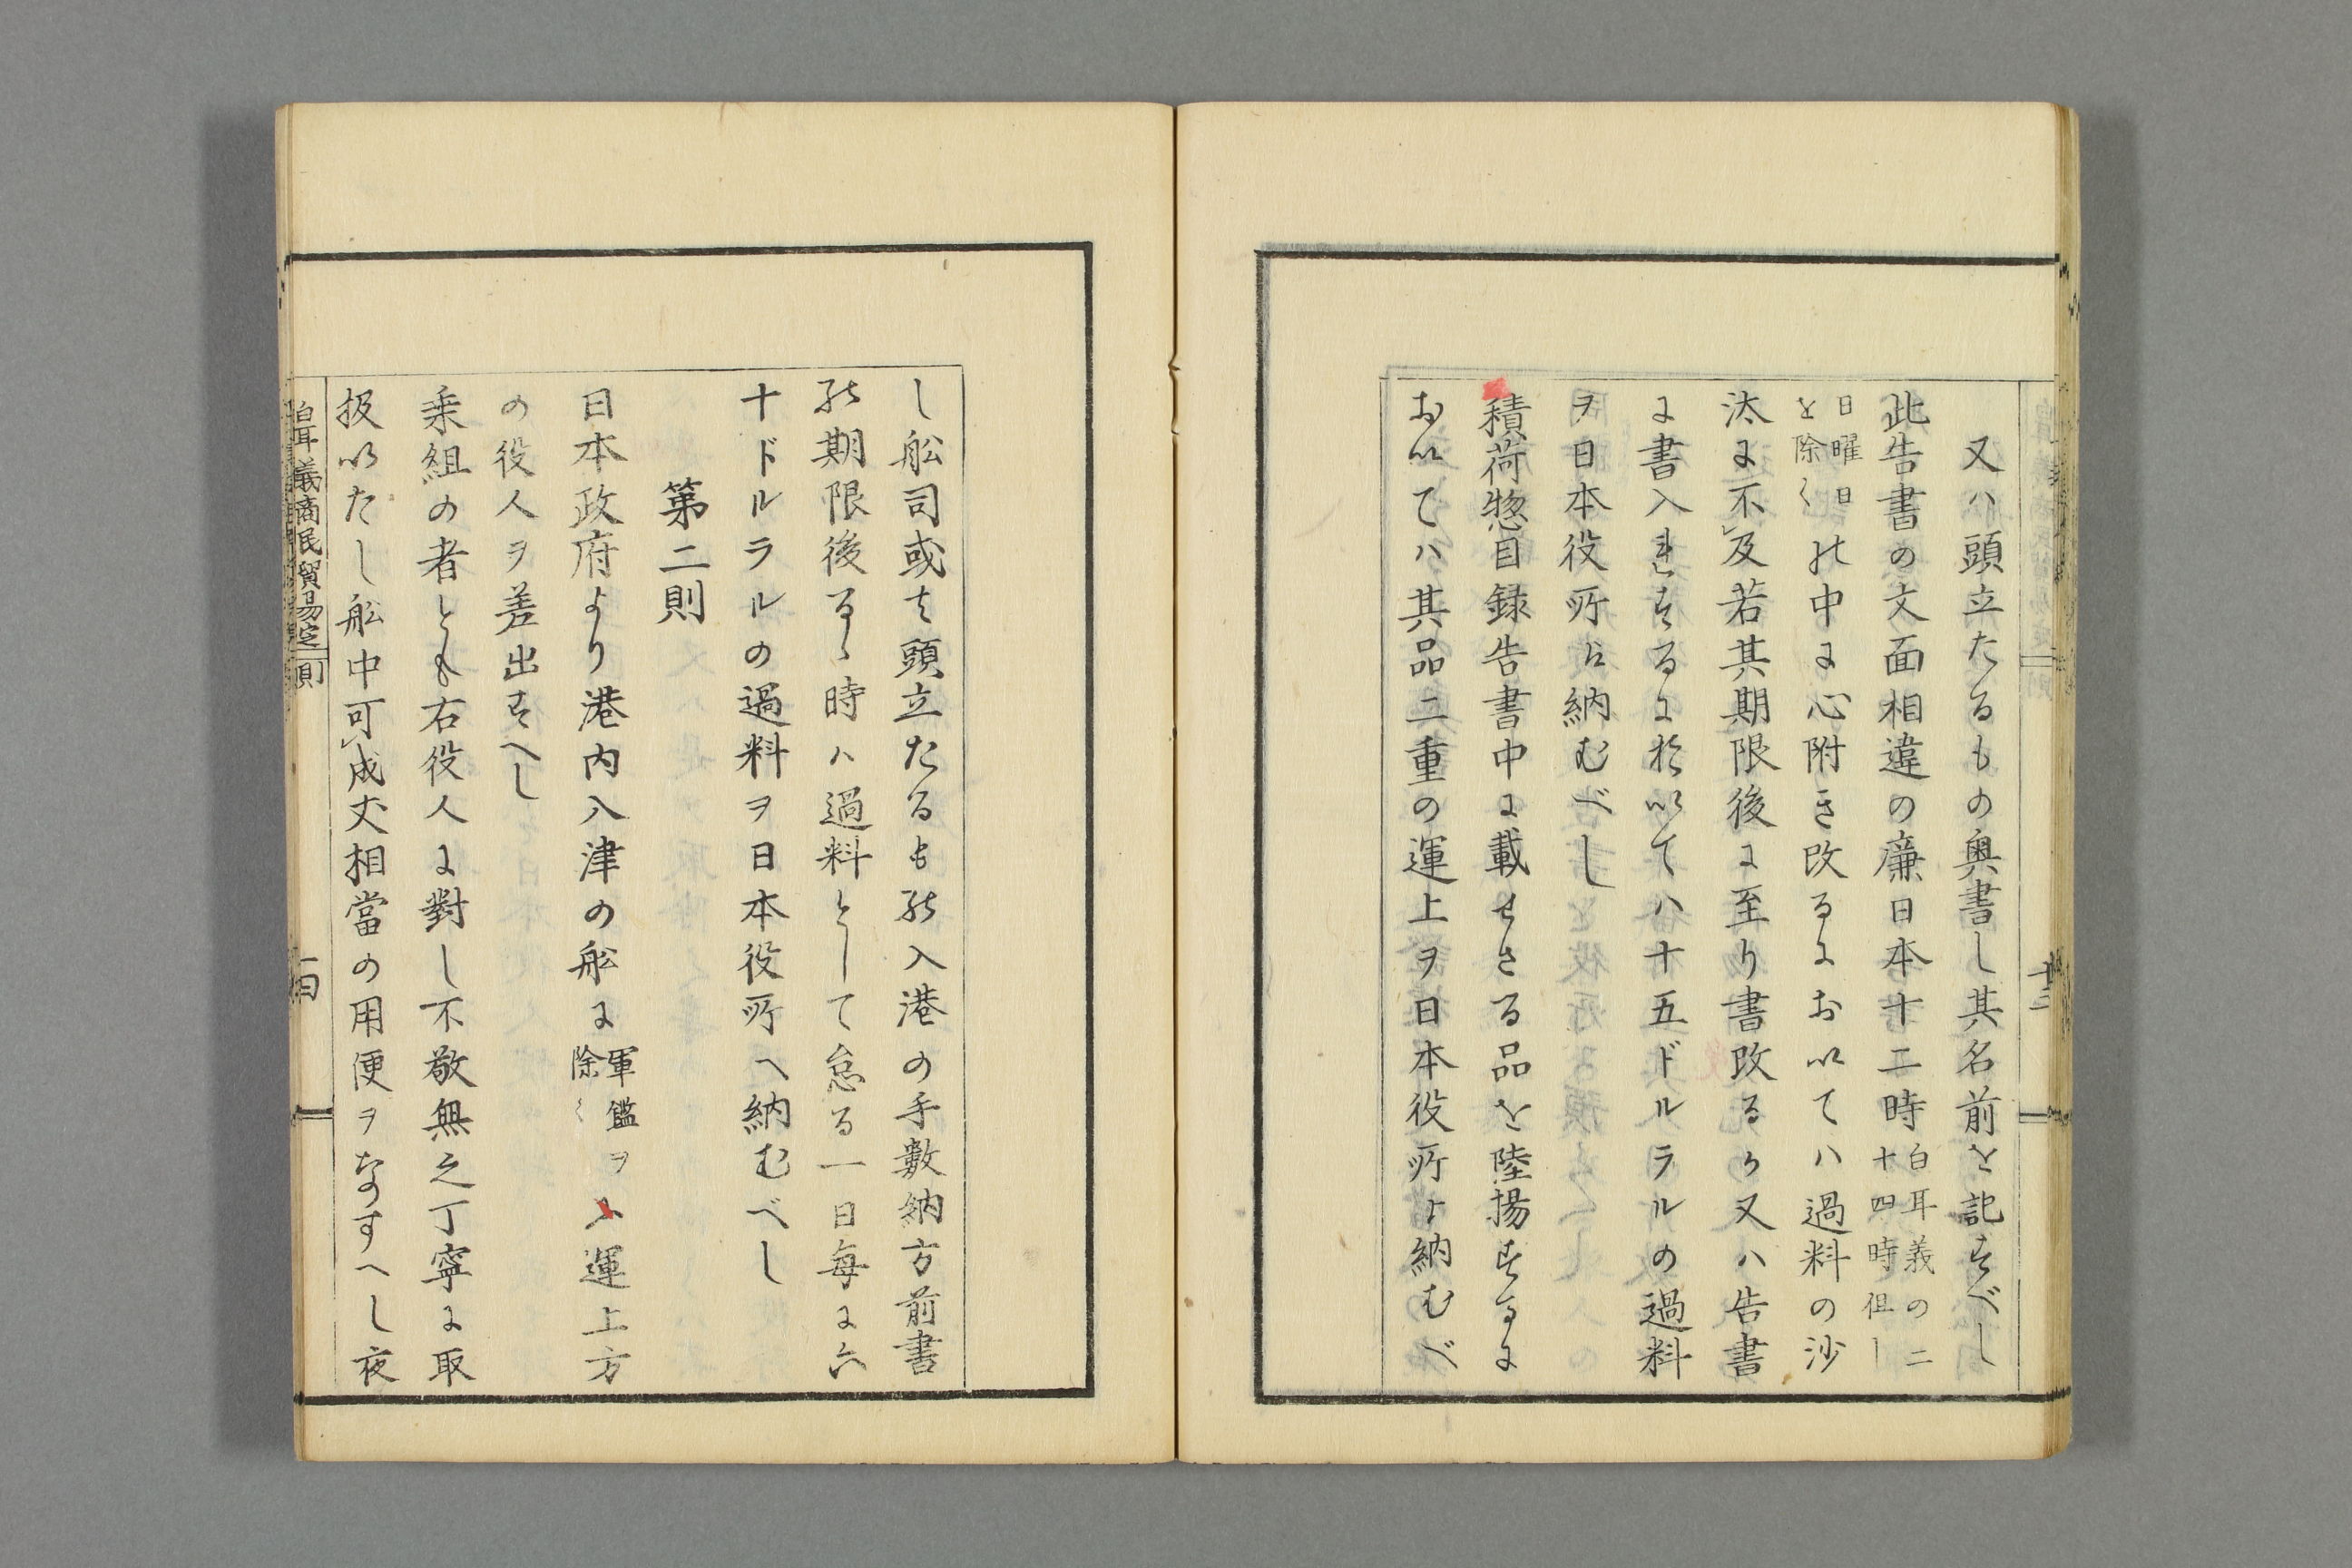 又ハ頭立たるもの奥書し其名前を記すべし
此告書の文面相違の廉日本十二時白耳義の二十四時但し
日曜日を除くの中に心附き改るにおいてハ過料の沙
汰に不及若其期限後に至り書改るか又ハ告書
に書入れするに於いてハ十五ドルラルの過料
ヲ日本役所に納むべし
積荷惣目録告書中に載せさる品を陸揚するに
おいてハ其品二重の運上ヲ日本役所に納むべ
し舩司或は頭立たるもの入港の手數納方前書
の期限後るゝ時ハ過料として怠る一日每に六
十ドルラルの過料ヲ日本役所へ納むべし
第二則
日本政府より港内入津の舩に軍鑑ヲ除く運上方
の役人ヲ差出すへし
乗組の者とも右役人に對し不敬無之丁寧に取
扱いたし舩中可成丈相當の用便ヲなすへし夜
白耳義商民貿易定則